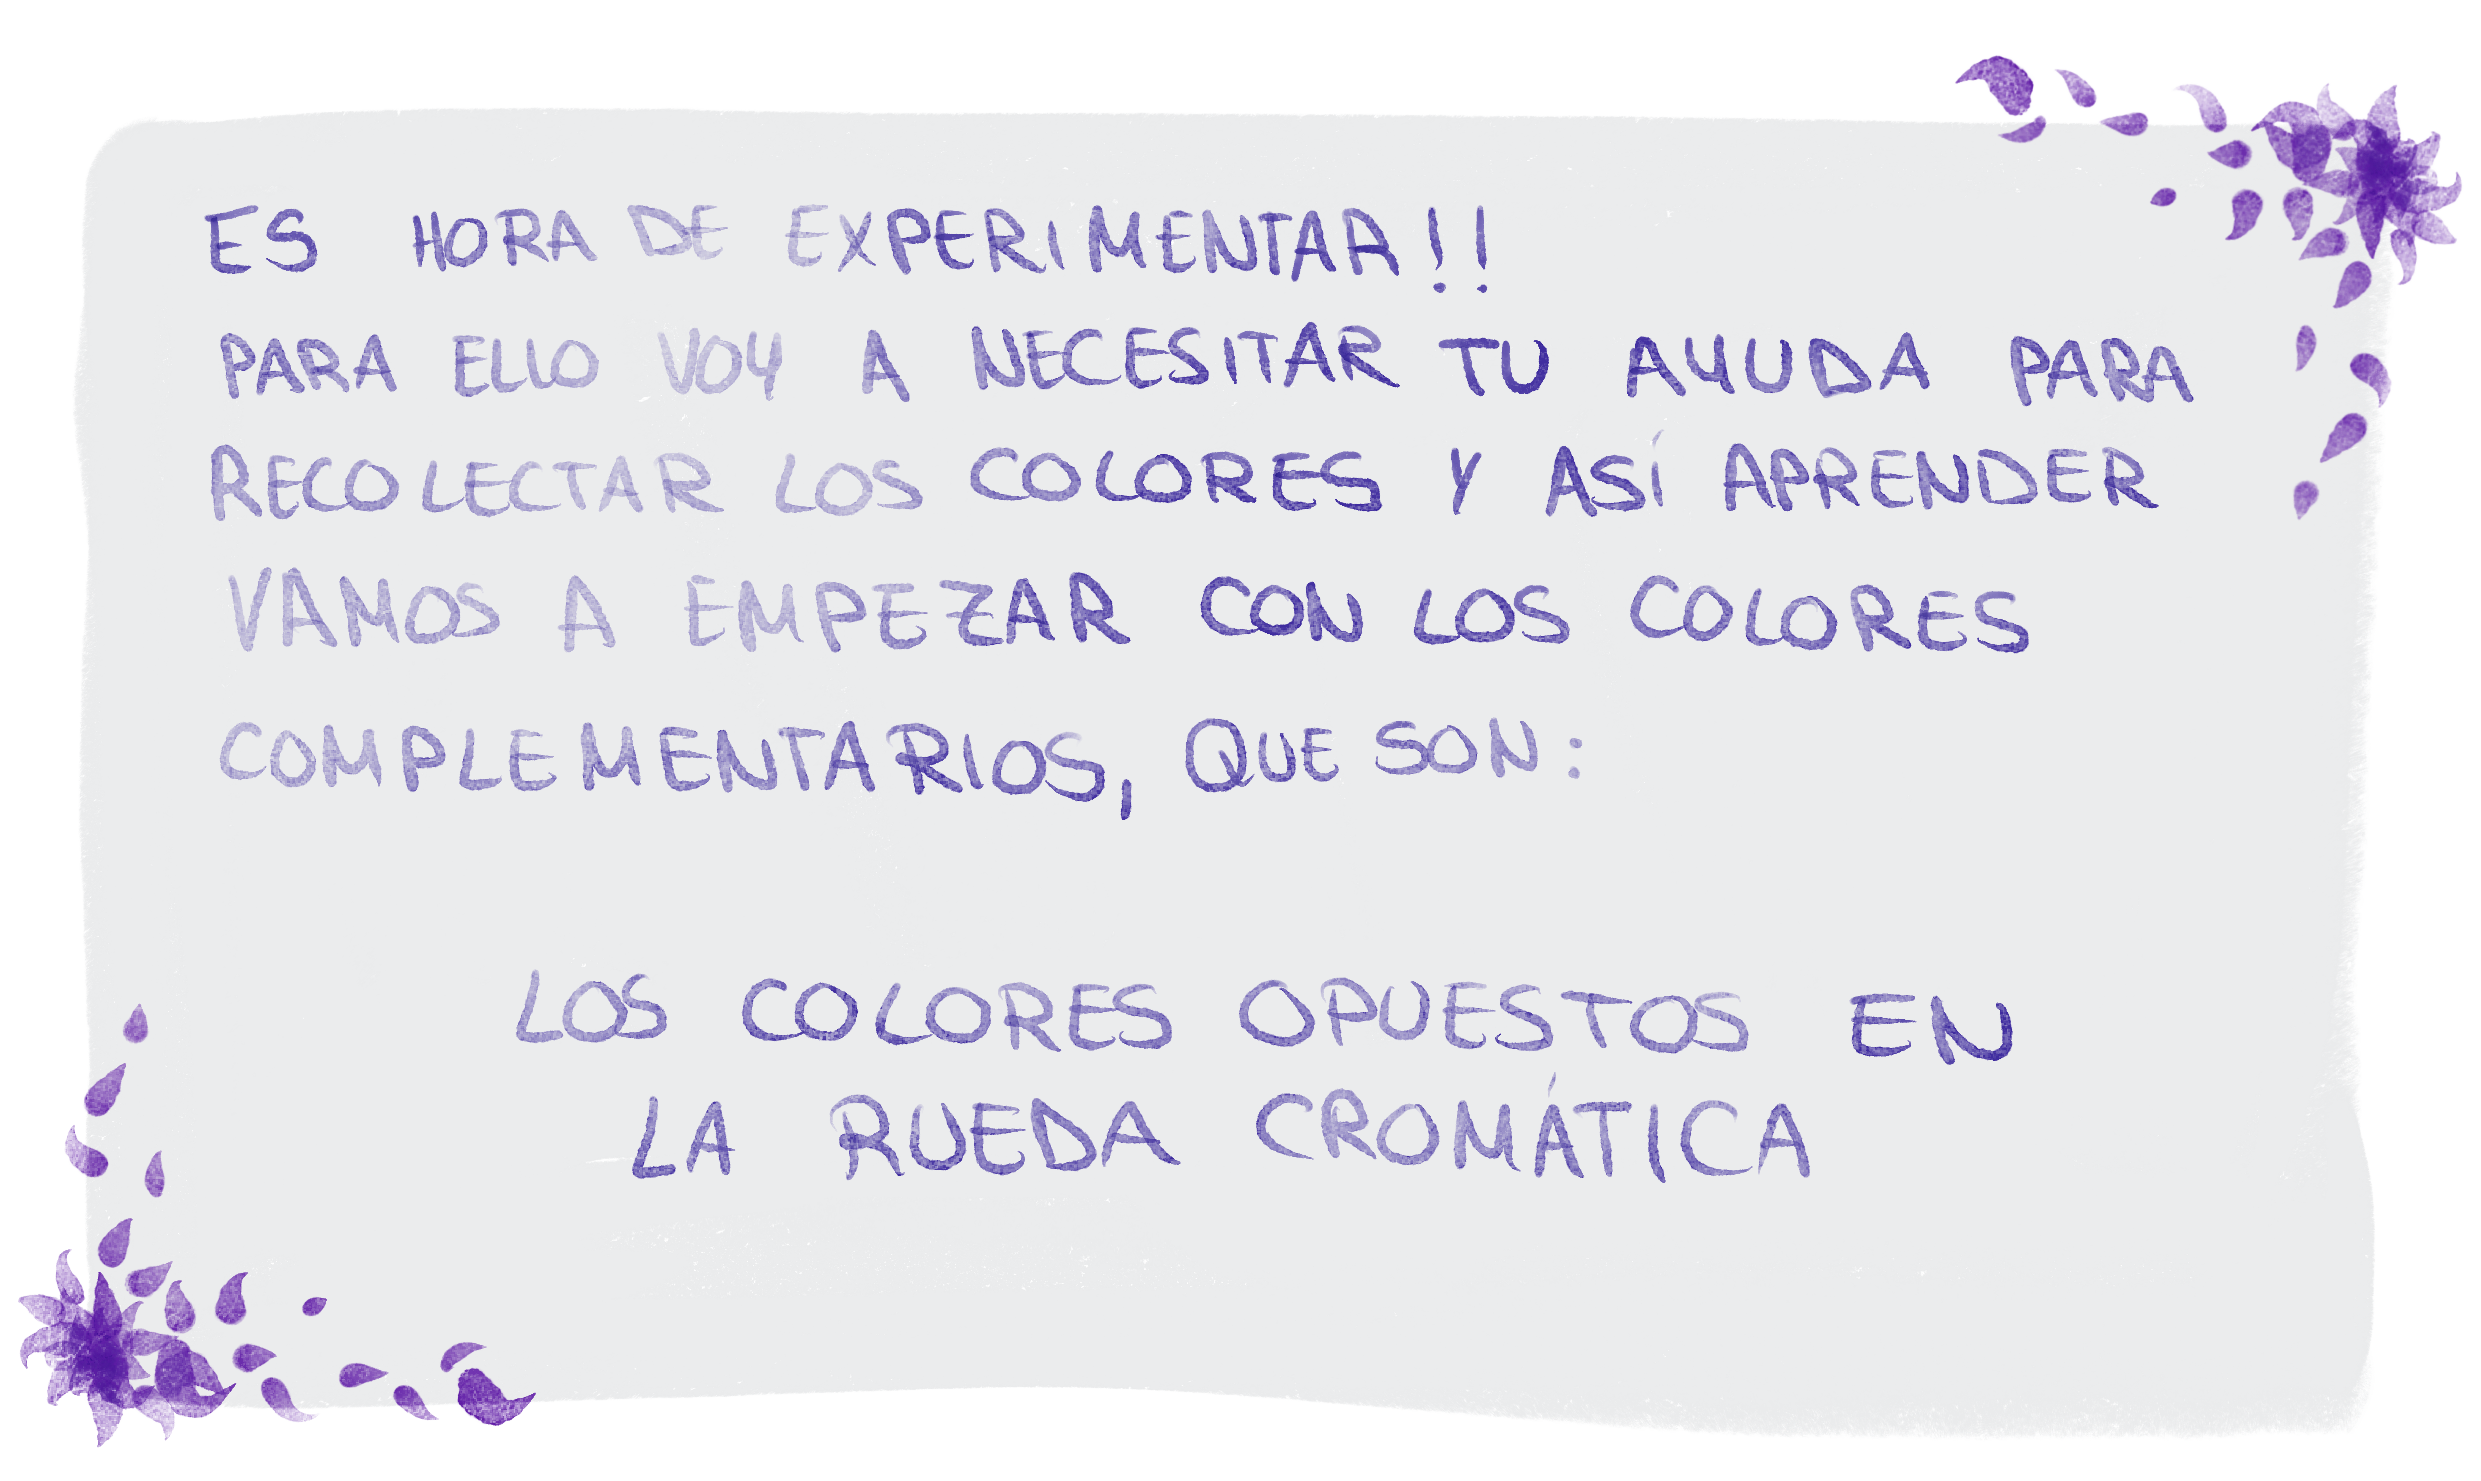 ES HORA DE EXPERIMENTAR!!
PARA ELLO VOY A NECESITAR TU AYUDA PARA
RECOLECTAR LOS COLORES Y ASÍ APRENDER
VAMOS A EMPEZAR CON LOS COLORES
COMPLEMENTARIOS, QUE SON:
LOS COLORES OPUESTOS EN
LA RUEDA CROMÁTICA